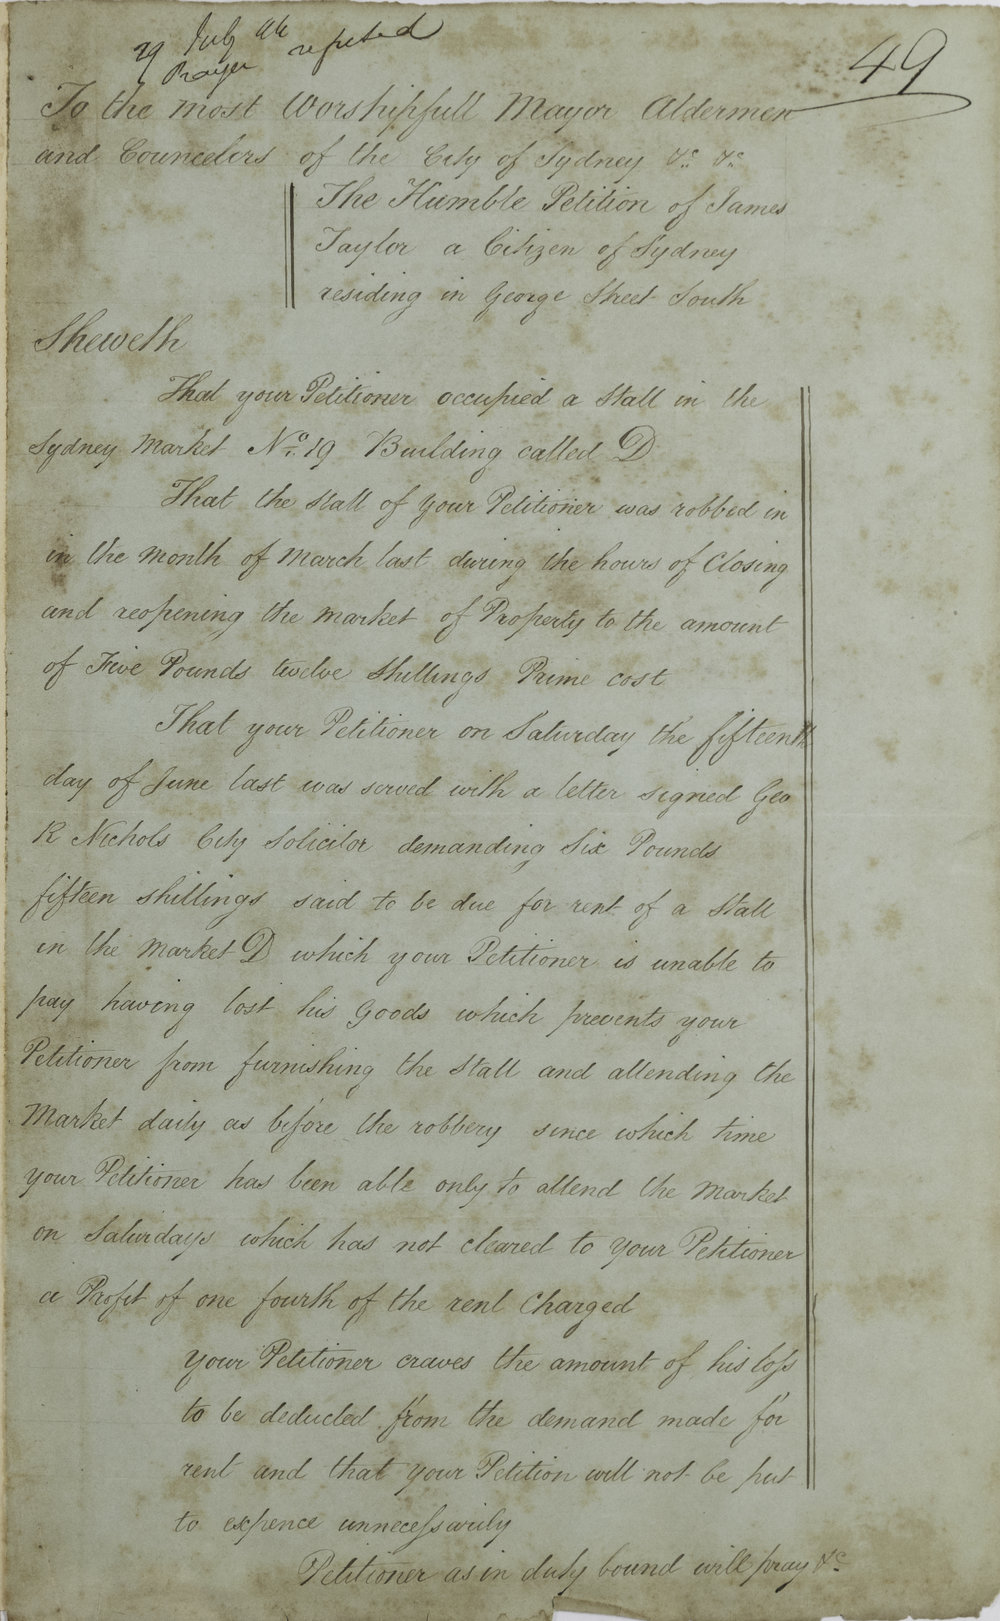 29 July 44
Prayer refused
49
To the most Worshipfull Mayor Aldermen
and Councelors of the City of Sydney &c &c
The Humble Petition of James
Taylor a Citizen of Sydney
residing in George Street South
Sheweth
That your Petitioner occupied a Stall in the
Sydney Market No. 19 Building called D
That the stall of your Petitioner was robbed in
in the month of March last during the hours of Closing
and reopening the market of Property to the amount
of Five Pounds twelve shillings Prime cost
That your Petitioner on Saturday the fifteenth
day of June last was served with a letter signed Geo
R Nichols City Solicitor demanding Six Pounds
fifteen shillings said to be due for rent of a Stall
in the market D which your Petitioner is unable to
pay having lost his Goods which prevents your
Petitioner from furnishing the Stall and attending the
Market daily as before the robbery since which time
your Petitioner has been able only to attend the market
on Saturdays which has not cleared to your Petitioner
a Profit of one fourth of the rent Charged
Your Petitioner craves the amount of his loss
to be deducted from the demand made for
rent and that your Petition will not be put
to expence unnecessarily
Petitioner as in duty bound will pray &c